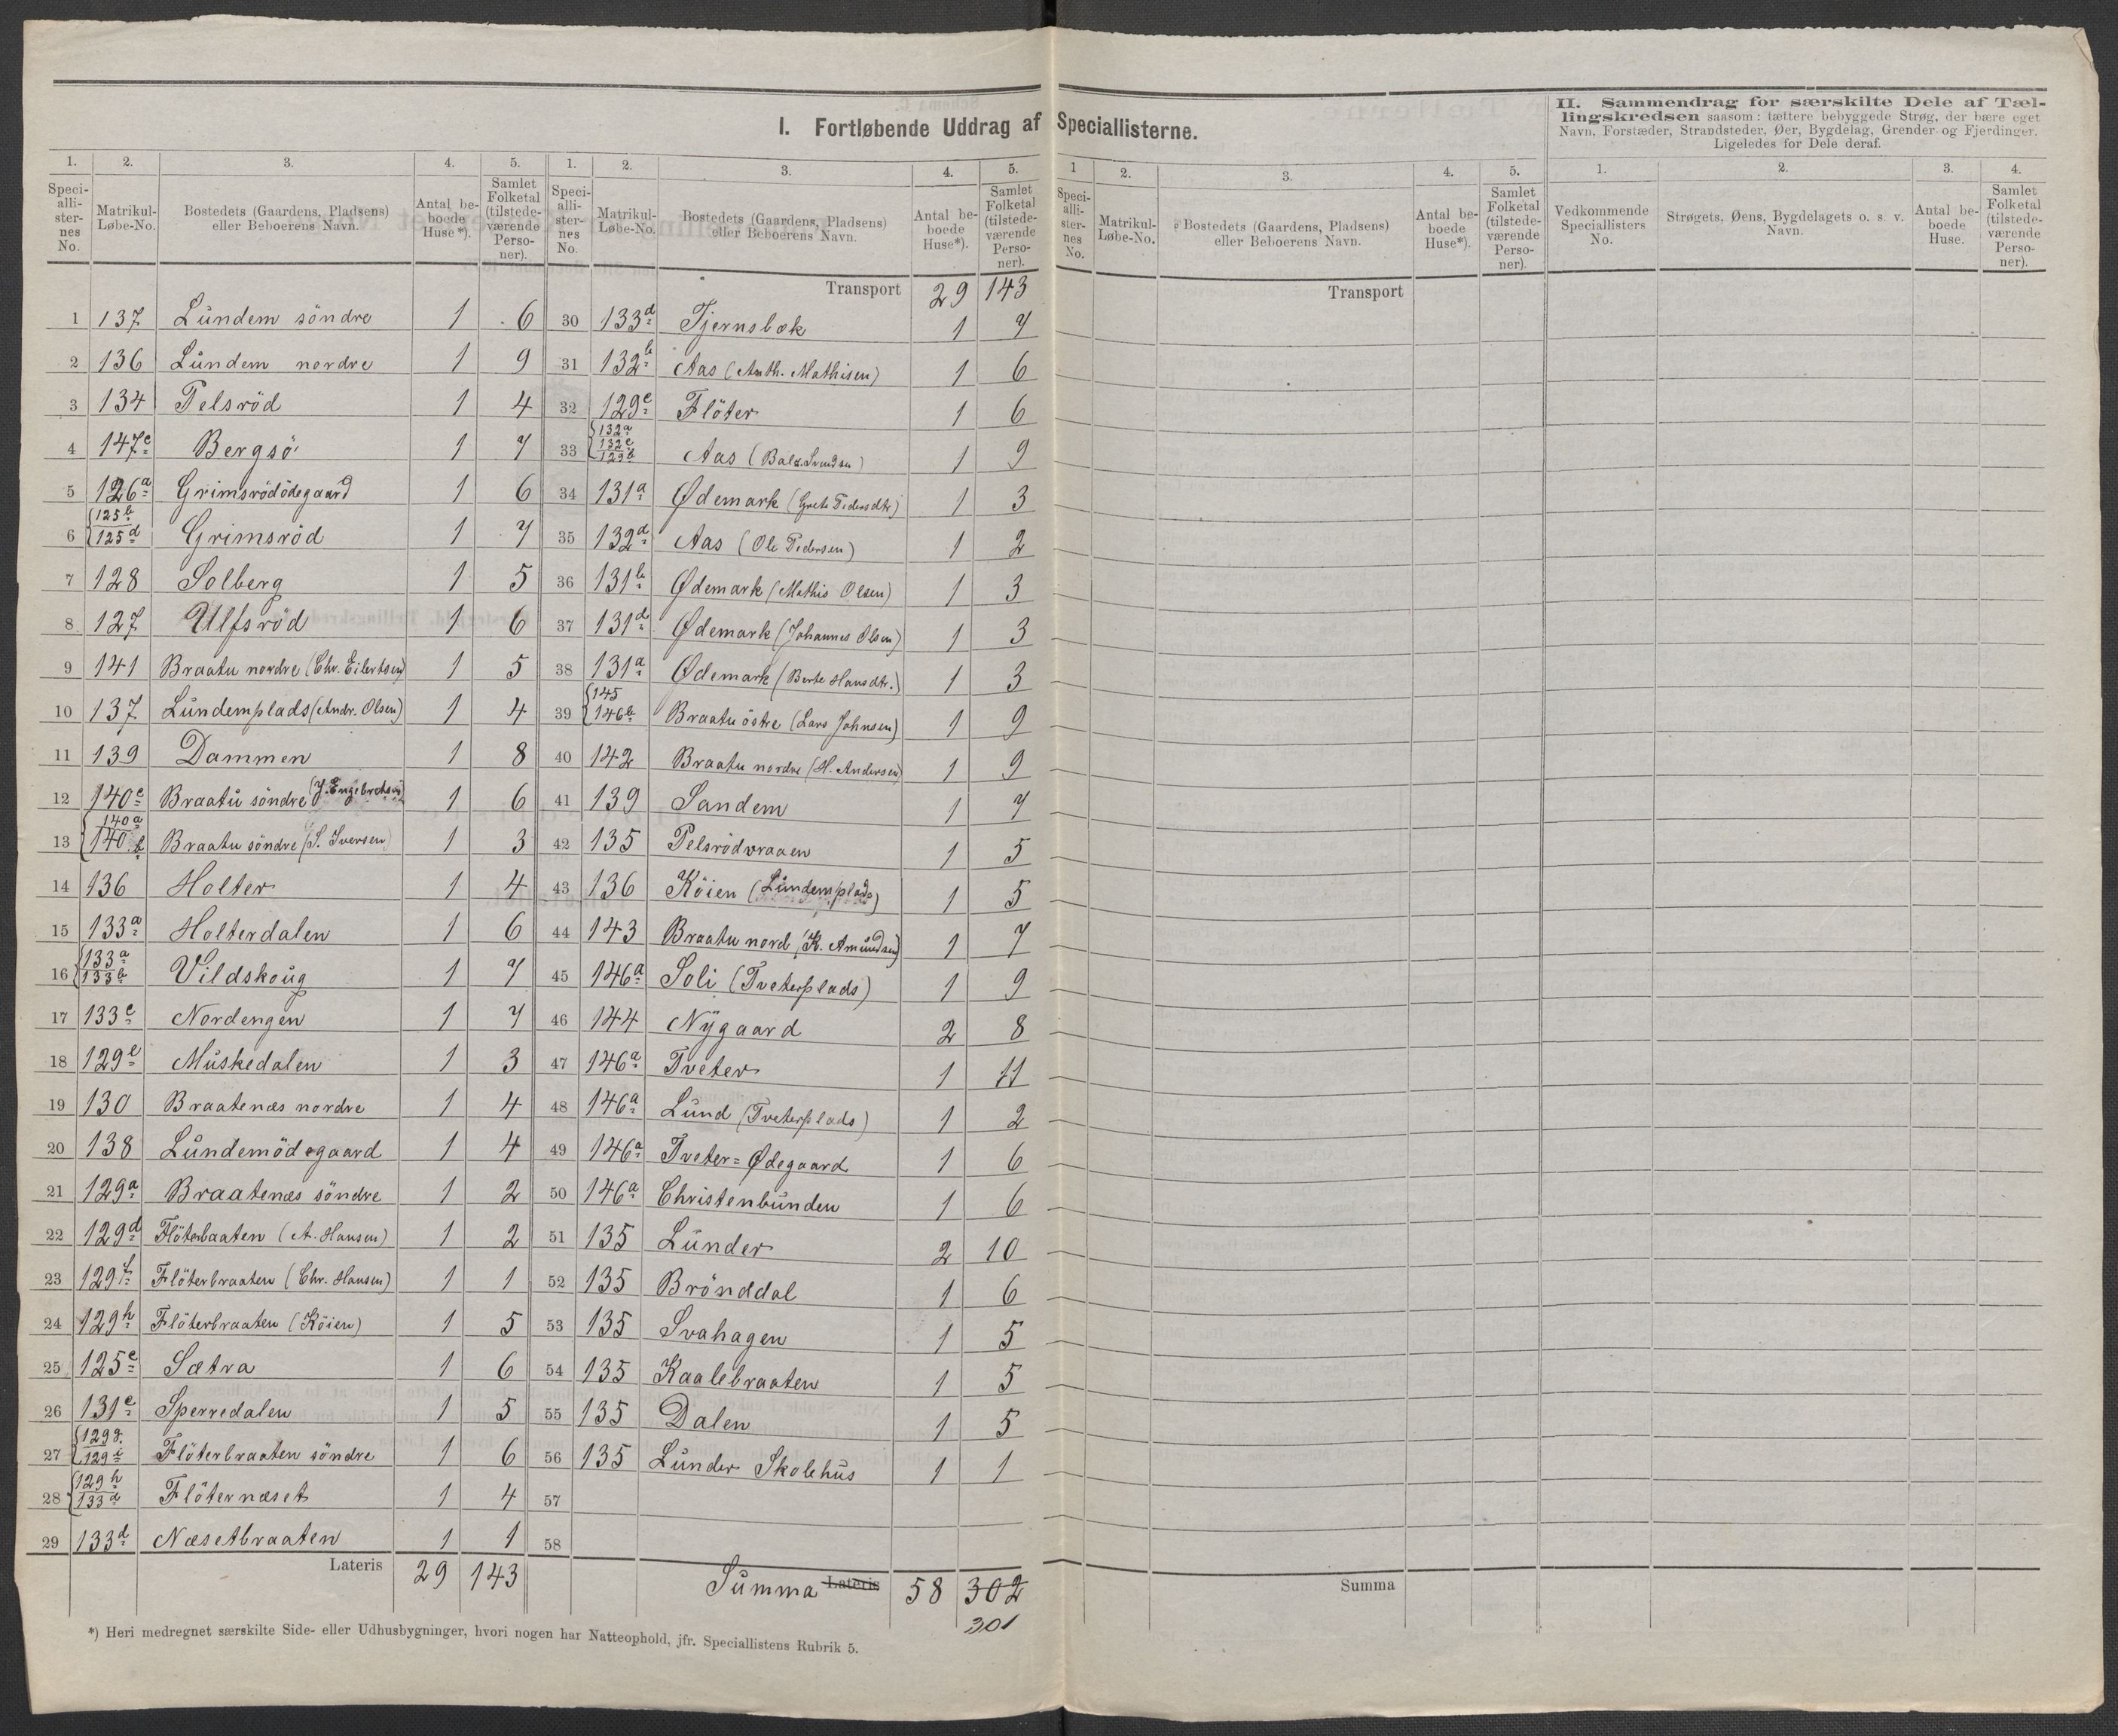 I. Fortløbende Uddrag af Speciallisterne.
1. 2. 3. 4. 5.
Speciallisternes No. Matrikul-Løbe-No. Bostedets (Gaardens, Pladsens) eller Beboerens Navn. Antal beboede Huse*). Samlet Folketal (tilstedeværende Personer).
1 137 Lundem söndre 1 6
2 136 Lundem nordre 1 9
3 134 Pelsröd 1 4
4 147c Bergsö 1 7
5 126a Grimsrödödegaard 1 6
6 {125b 125d Grimsröd 1 7
7 128 Solberg 1 5
8 127 Ulfsröd 1 6
9 141 Braatu nordre (Chr. Eilertsen) 1 5
10 137 Lundemplads (Andr. Olsen) 1 4
11 139 Dammen 1 8
12 140c Braatu söndre (J. Engebretsen) 1 6
13 {140a 140b Braatu söndre (S. Iversen) 1 3
14 136 Holter 1 4
15 133a Holterdalen 1 6
16 {133a 133b Vildskoug 1 7
17 133c Nordengen 1 7
18 129e Muskedalen 1 3
19 130 Braatenæs nordre 1 4
20 138 Lundemödegaard 1 4
21 129a Braatenæs söndre 1 2
22 129d Flöterbaaten (A. Hansen) 1 2
23 129f Flöterbraaten (Chr. Hansen) 1 1
24 129h Flöterbraaten (Köien) 1 5
25 125c Sætra 1 6
26 131c Sperredalen 1 5
27 {129g 129i Flöterbraaten söndre 1 6
28 {129h 133d Flöternæset 1 4
29 133d Næsetbraaten 1 1
Lateris 29 143
*) Heri medregnet særskilte Side- eller Udhusbygninger, hvori nogen har Natteophold, jfr. Speciallistens Rubrik 5.
1. 2. 3. 4. 5.
Speciallisternes No. Matrikul-Løbe-No. Bostedets (Gaardens, Pladsens) eller Beboerens Navn. Antal beboede Huse*). Samlet Folketal (tilstedeværende Personer).
Transport 29 143
30 133d Tjernsbæk 1 7
31 132b Aas (Anth. Mathisen) 1 6
32 129c Flöter 1 6
33 {132a 132c 129b Aas (Balz. Svendsen) 1 9
34 131a Ødemark (Grete Pedersdtr) 1 3
35 132d Aas (Ole Pedersen) 1 2
36 131b Ødemark (Mathis Olsen) 1 3
37 131d Ødemark (Johannes Olsen) 1 3
38 131a Ødemark (Berte Hansdtr.) 1 3
39 {145 146b Braatu östre (Lars Johnsen) 1 9
40 142 Braatu nordre (H. Andersen) 1 9
41 139 Sandem 1 7
42 135 Pelsrödvraaen 1 5
43 136 Köien (Lundemplads) 1 5
44 143 Braatu nord (K. Amundsen) 1 7
45 146a Soli (Tveterplads) 1 9
46 144 Nygaard 2 8
47 146a Tveter 1 11
48 146a Lund (Tveterplads) 1 2
49 146a Tveter=Ødegaard 1 6
50 146a Christenbunden 1 6
51 135 Lunder 2 10
52 135 Brönddal 1 6
53 135 Svahagen 1 5
54 135 Kaalebraaten 1 5
55 135 Dalen 1 5
56 135 Lunder Skolehus 1 1
57
58
Summa Lateris 58 302
301
1 2. 3. 4. 5.
Speciallisternes No. Matrikul-Løbe-No. Bostedets (Gaardens, Pladsens) eller Beboerens Navn. Antal beboede Huse*). Samlet Folketal (tilstedeværende Personer).
Transport
Summa
II. Sammendrag for særskilte Dele af Tæl-
lingskredsen saasom: tættere bebyggede Strøg, der bære eget
Navn, Forstæder, Strandsteder, Øer, Bygdelag, Grender og Fjerdinger.
Ligeledes for Dele deraf.
1. 2. 3. 4.
Vedkommende Speciallisters No. Strøgets, Øens, Bygdelagets o. s. v. Navn. Antal beboede Huse. Samlet Folketal (tilstedeværende Personer).